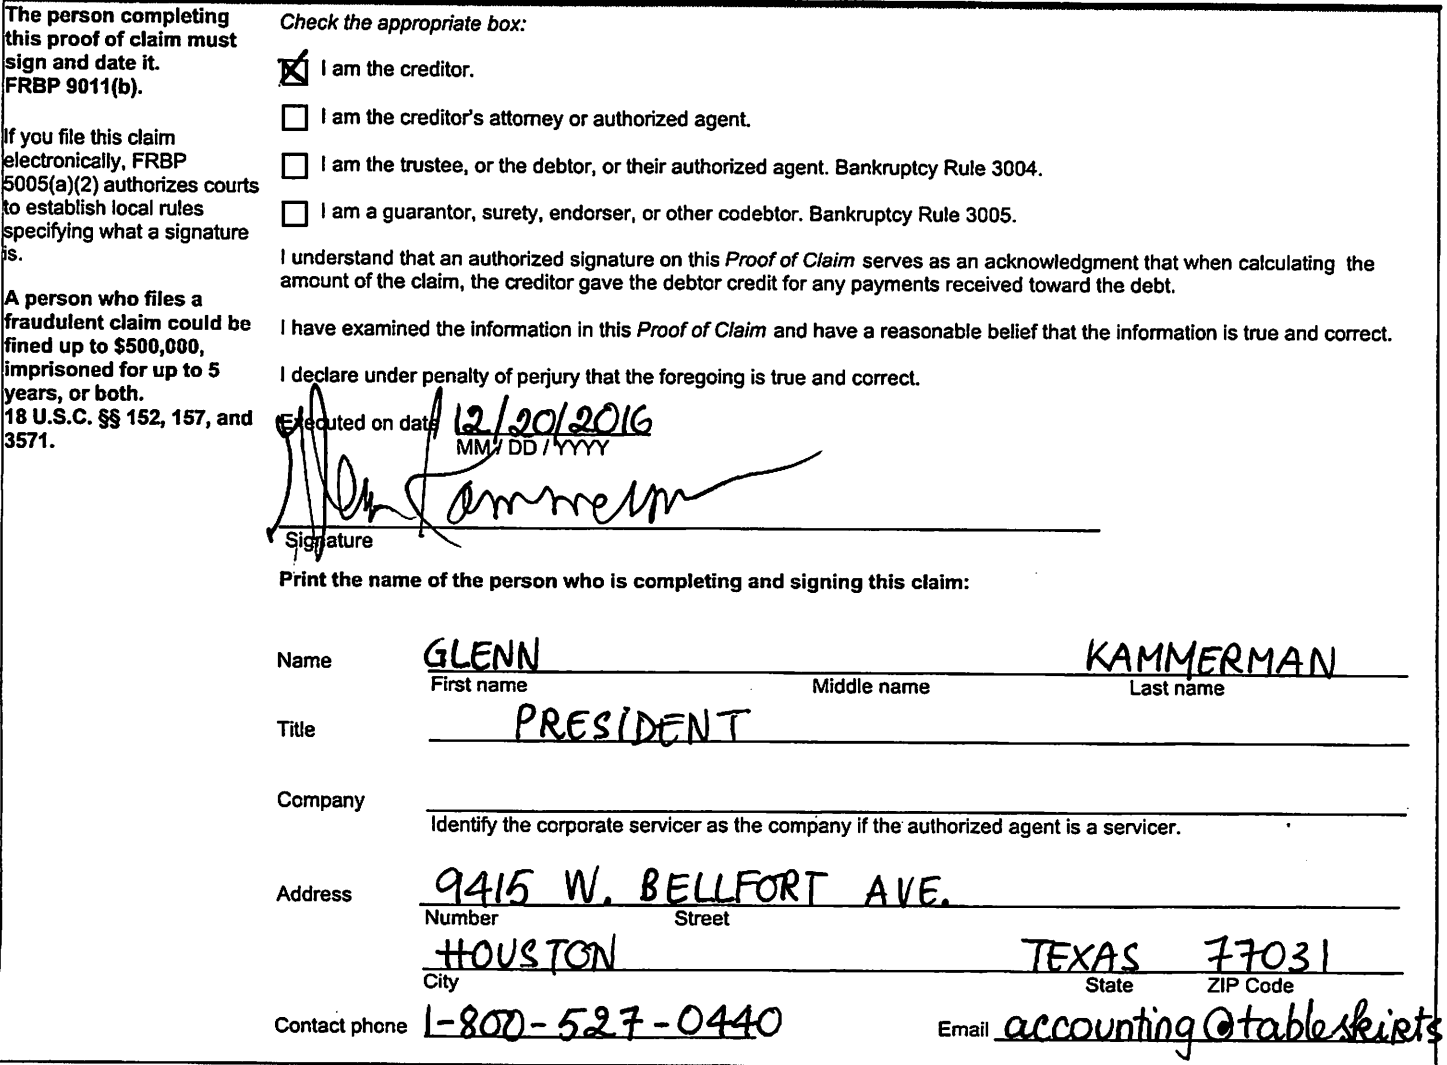 The person completing
this proof of claim must
sign and date it.
FRBP 9011(b).
If you file this claim
electronically, FRBP
5005(a)(2) authorizes courts
to establish local rules
specifying what a signature
is.
A person who files a
fraudulent claim could be
fined up to $500,000,
imprisoned for up to 5
years, or both.
18 U.S.C. §§ 152, 157, and
3571.
Check the appropriate box:
I am the creditor.
I am the creditor's attorney or authorized agent.
I am the trustee, or the debtor, or their authorized agent. Bankruptcy Rule 3004.
I am a guarantor, surety, endorser, or other codebtor. Bankruptcy Rule 3005.
I understand that an authorized signature on this Proof of Claim serves as an acknowledgment that when calculating the
amount of the claim, the creditor gave the debtor credit for any payments received toward the debt.
I have examined the information in this Proof of Claim and have a reasonable belief that the information is true and correct.
I declare under penalty of perjury that the foregoing is true and correct.
Executed on date 12/20/2016
MM / DD / YYYY
Signature
Print the name of the person who is completing and signing this claim:
Name GLENN KAMMERMAN
First name Middle name Last name
Title PRESIDENT
Company
Identify the corporate servicer as the company if the authorized agent is a servicer.
Address 9415 W. BELLFORT AVE.
Number Street
HOUSTON TEXAS 77031
City State ZIP Code
Contact phone 1-800-527-0440 Email accounting@tableskirts